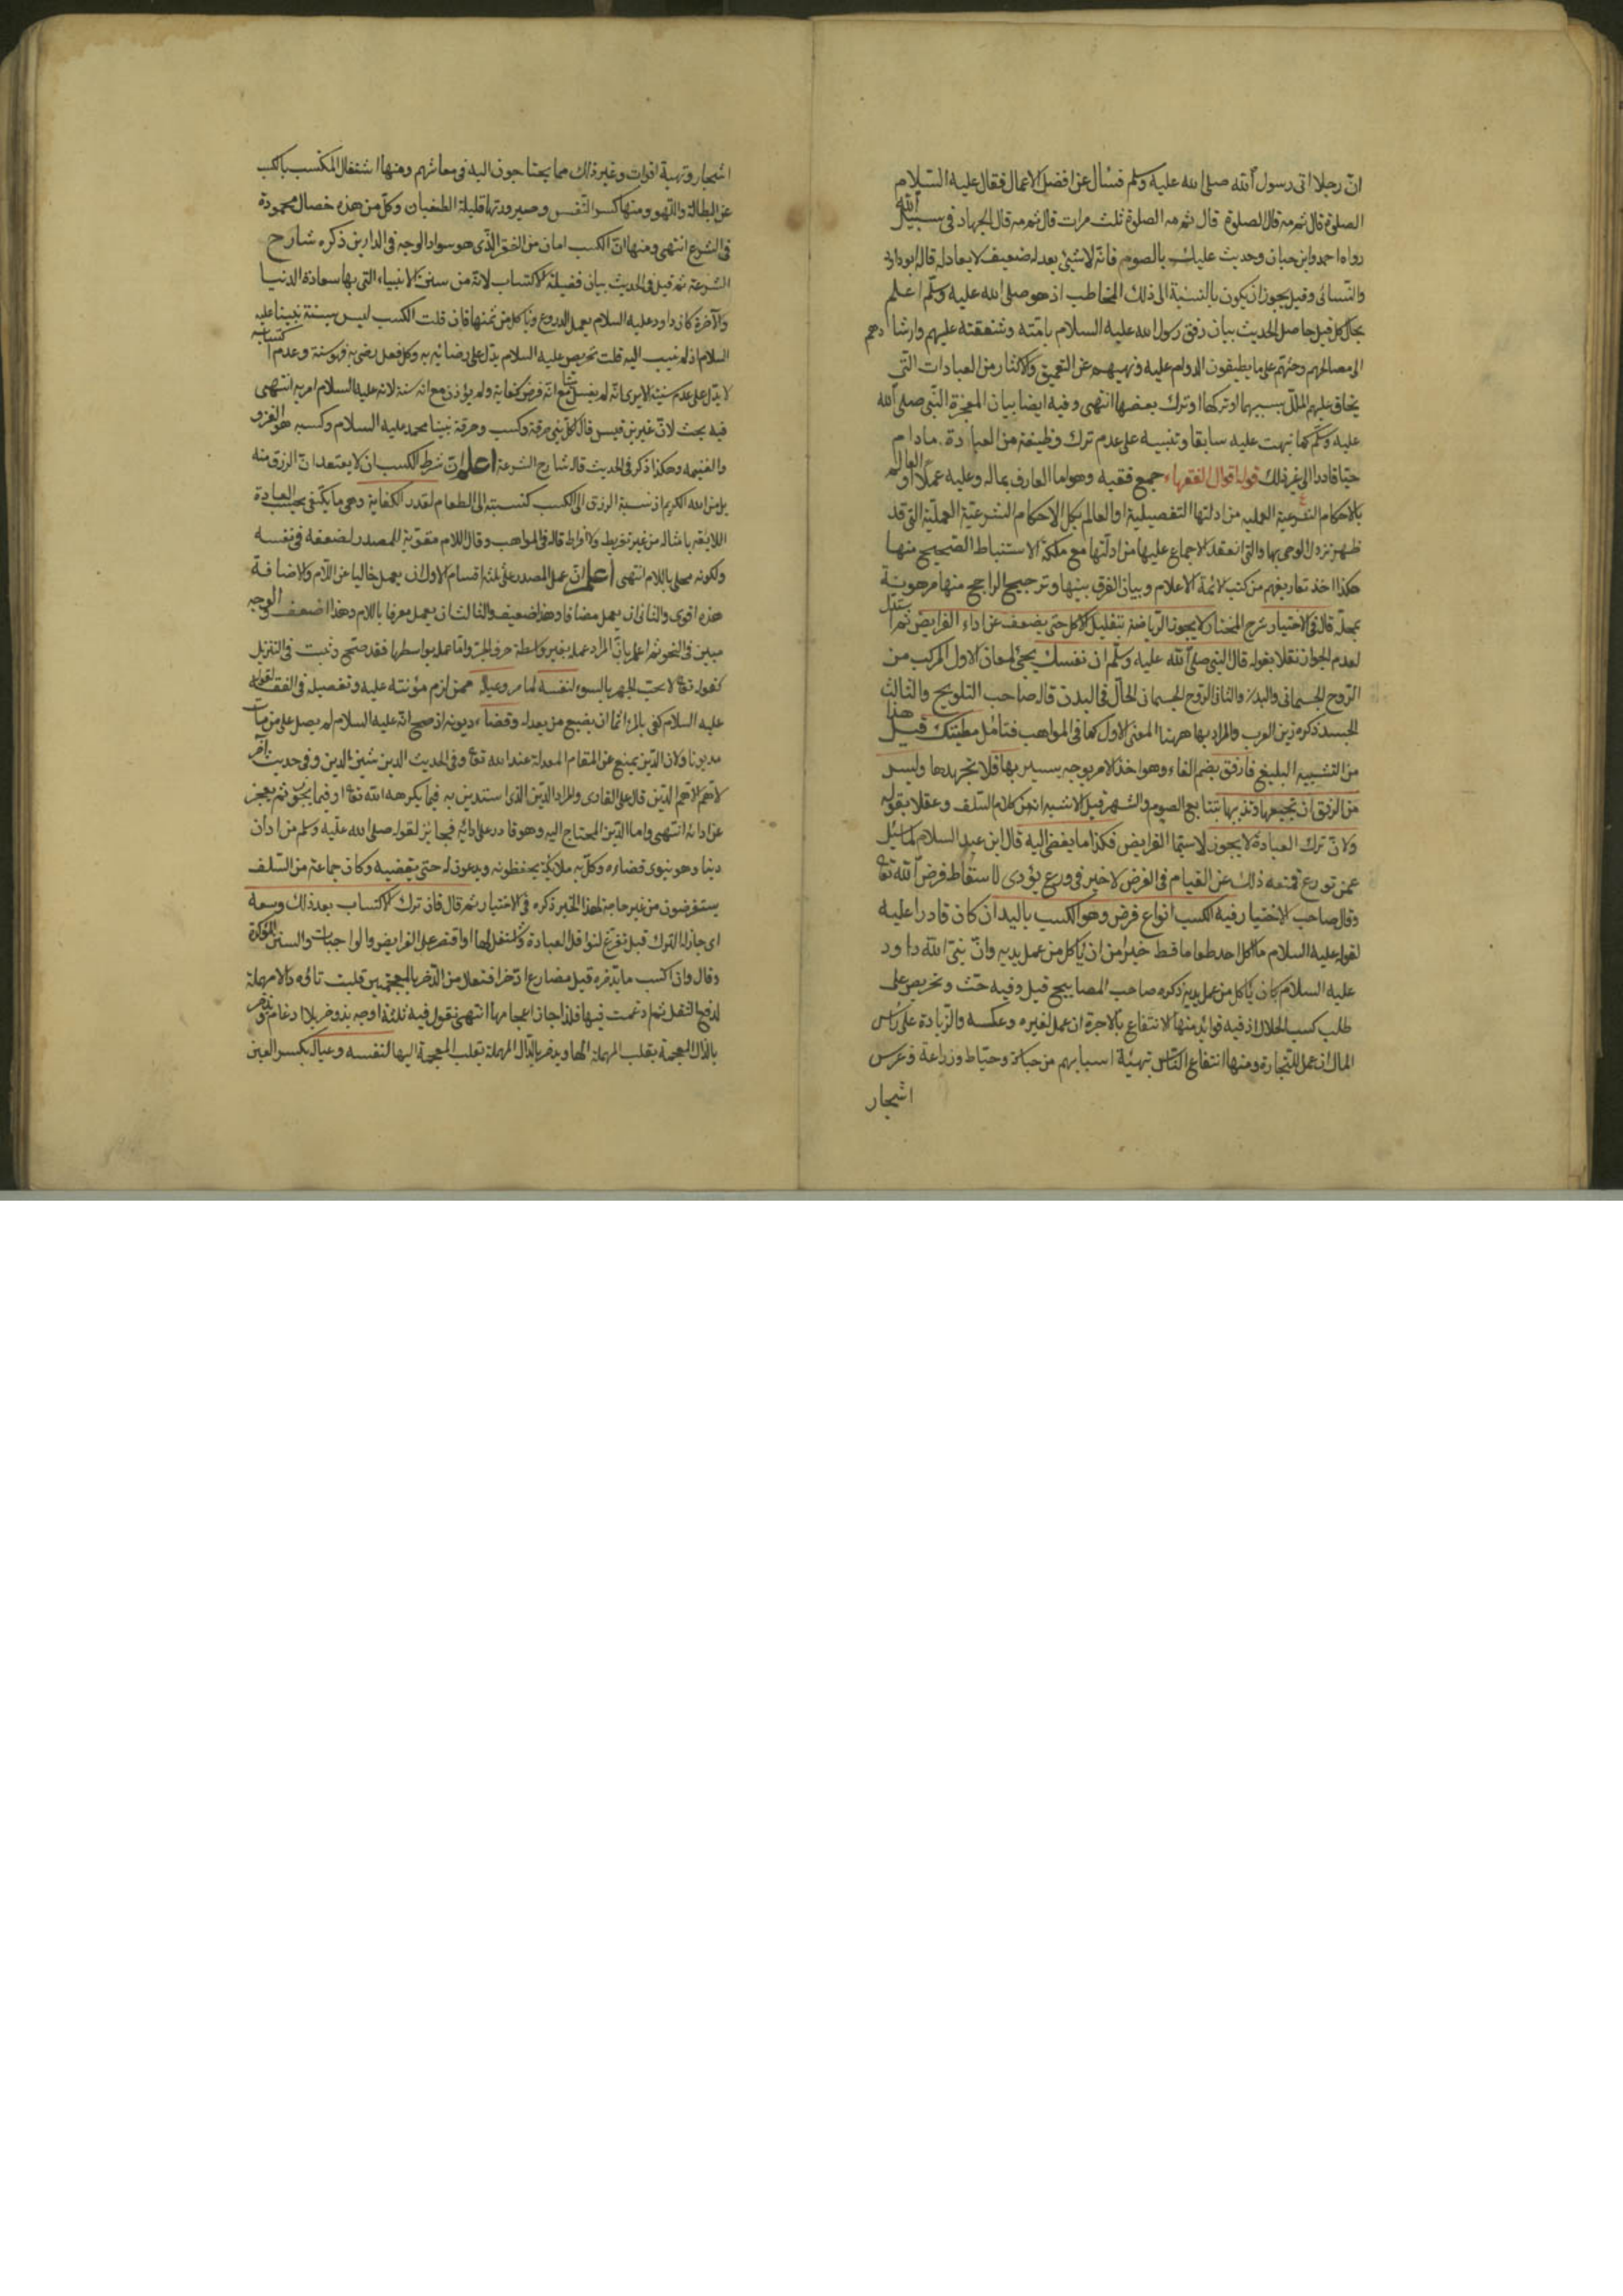 انّ رجلا اتى رسول الله صلى الله عليه وسلم فسأل عن افضل الاعمال فقال عليه السلام
الصلوة قال ثم مه قال الصلوة قال ثم مه الصلوة ثلث مرات قال ثم مه قال الجهاد فى سبيل الله
رواه احمد وابن حبان وحديث عليك بالصوم فانّه لا شئ يعدله ضعيف لا يعادله قاله ابو داود
والنّسائى وقيل يجوز ان يكون بالنسبة الى ذلك المخاطب اذ هو صلى الله عليه وسلّم اعلم
بحال كل قيل حاصل الحديث بيان رفق رسول الله عليه السلام بامّته وشفقته عليهم وارشادهم
الى مصالحهم وحثّهم على ما يطيقون الدوام عليه ونهيهم عن التعمق والاكثار من العبادات التى
يخاف عليهم الملل بسببها او تركها او ترك بعضها انتهى وفيه ايضا بيان المعجزة النّبى صلى الله
عليه وسلّم كما نبهت عليه سابقا وتنبيه على عدم ترك وظيفة من العبادة ما دام
حيّا قادرا الى غير ذلك قوله اقوال الفقهاء جمع فقيه وهو اما العارف بماله وعليه عملا او العالم
بالاحكام الشرعية العملية من ادلتها التفصيلية او العالم بكل الاحكام الشرعيّة العمليّة التى قد
ظهر نزول الوحى بها والتى انعقد الاجماع عليها من ادلّتها مع ملكة الاستنباط الصّحيح منها
هكذا اخذ تعاريفهم من كتب الائمة الاعلام وبيان الفرق بينها وترجيح الراجح منها مرهونة
بمحلّه قال فى الاختيار شرح المختار ولا يجوز الرّياضة بتقليل الاكل حتى يضعف عن اداء الفرايض ثم استدل
لعدم الجواز نقلا بقوله قال النبى صلى الله عليه وسلّم ان نفسك يجئ لمعان الاول المركب من
الرّوح الجسمانى والبدن والثانى الرّوح الجسمانى الحالّ فى البدن قاله صاحب التلويح والثالث
الجسد ذكره زين العرب والمراد بها ههنا المعنى الاول كما فى المواهب فتأمل مطيّتك قيل هذا
من التشبيه البليغ فارفق بضم الفاء وهو اخذ الامر بوجه يسير بها فلا تجهدها وليس
من الرفق ان تجيعها وتذيبها بتتابع الصوم والسّهر قيل الاشبه انه من كلام السّلف وعقلا بقوله
ولانّ ترك العبادة لا يجوز لا سيّما الفرايض فكذا ما يفضى اليه قال ابن عبد السلام لما سئل
عمن تورع فمنعه ذلك عن القيام فى الفرض لا خير فى ورع يؤدى لاسقاط فرض الله تعا
وقال صاحب الاختيار فيه الكسب انواع فرض وهو الكسب باليد ان كان قادرا عليه
لقوله عليه السلام ما اكل احد طعاما قط خيرا من ان يأكل من عمل يديه وانّ نبىّ الله داود
عليه السلام كان يأكل من عمل يديه ذكره صاحب المصابيح قيل وفيه حثّ وتحريص على
طلب كسب الحلال اذ فيه فوائد منها الانتفاع بالاجرة ان عمل لغيره وعكسه والزّيادة على رأس
المال ان عمل للتجارة ومنها انتفاع النّاس بتهيئة اسبابهم من حياكة وخياط وزراعة وغرس
اشجار
اشجار وتهيئة اقوات وغير ذلك مما يحتاجون اليه فى معاشهم ومنها اشتغال المكتسب بالكسب
عن البطالة واللّهو ومنها كسر النّفس وصيرورتها قليلة الطغيان وكلّ من هذه خصال محمودة
فى الشرع انتهى ومنها انّ الكسب امان من الفقر الّذى هو سواد الوجه فى الدارين ذكره شارح
الشرعة ثم قيل فى الحديث بيان فضيلة الاكتساب لانّه من سنن الانبياء التى بها سعادة الدنيا
والآخرة كان داود عليه السلام يعمل الدروع ويأكل من ثمنها فان قلت الكسب ليس بسنة نبينا عليه
السلام اذ لم ينسب اليه قلت تحريص عليه السلام يدل على رضائه به وكل فعل رضى به فهو سنة وعدم اكتسابه
لا يدلّ على عدم سنيته الا يرى انّه لم يغسل ميتا مع انّه فرض كفاية ولم يؤذن مع انه سنة لانه عليه السلام امر به انتهى
فيه بحث لانّ عنبر بن قيس قال كل نبى حرفة وكسب وحرفة نبينا محمد عليه السلام وكسبه هو الغزو
والغنيمة وهكذا ذكر فى الحديث قاله شارح الشرعة اعلم انّ شرط الكسب ان لا يعتقد انّ الرزق منه
بل من الله الكريم اذ نسبة الرزق الى الكسب كنسبته الى الطعام لقدر الكفاية وهى ما يكتفى بحسب العادة
اللايقة بامثاله من غير تفريط ولا افراط قاله فى المواهب وقال اللام مقوّية للمصدر لضعفه فى نفسه
ولكونه محلى باللام انتهى اعلم انّ عمل المصدر على ثلثة اقسام الاول ان يعمل خاليا عن اللّام والاضافة
هذه اقوى والثانى ان يعمل مضافا وهذا ضعيف والثالث ان يعمل معرفا باللام وهذا اضعف والوجه
مبين فى النحو ثم اعلم بانّ المراد عمله بغير واسطة حرف الجر وامّا عمله بواسطها فقد صحّ وثبت فى التنزيل
كقوله تعا لا يحب الجهر بالسوء لنفسه لما مر وعياله ممن لزم مؤنته عليه وتفصيله فى الفقه لقوله
عليه السلام كفى بالمرء اثما ان يضيع من يعوله وقضاء ديونه اذ صح انّه عليه السلام لم يصل على من مات
مديونا ولان الدّين يمنع عن المقام المعد له عند الله تعا وفى الحديث الدين شين الدين وفى حديث آخر
لا همّ الا همّ الدّين قال على القارى والمراد الدّين الذى استدين به فيما يكرهه الله تعا او فيما يجوز ثم عجز
عن ادائه انتهى واما الدّين المحتاج اليه وهو قادر على ادائه فجائز لقوله صلى الله عليه وسلم من ادان
دينا وهو ينوى قضاءه وكل به ملائكة يحفظونه ويدعون له حتى يقضيه وكان جماعة من السّلف
يستقرضون من غير حاجة لهذا الخبر ذكره فى الاختيار ثم قال فان ترك الاكتساب بعد ذلك وسعه
اى جاز له الترك قيل تفرّغ لنوافل العبادة واشتغل لها او اقتصر على الفرايض والواجبات والسنن المؤكدة
وقال وان اكتسب ما يدّخره قيل مضارع ادّخر افتعل من الذّخر بالمعجمتين قلبت تاؤه دالا مهملة
لدفع الثقل ثم ادغمت فيها فلذا جاز اعجامها انتهى نقول فيه ثلثة اوجه يذدخر بلا ادغام ويذّخر
بالذّال المعجمة بقلب المهملة الها ويدّخر بالدّال المهملة بقلب المعجمة اليها لنفسه وعياله بكسر العين